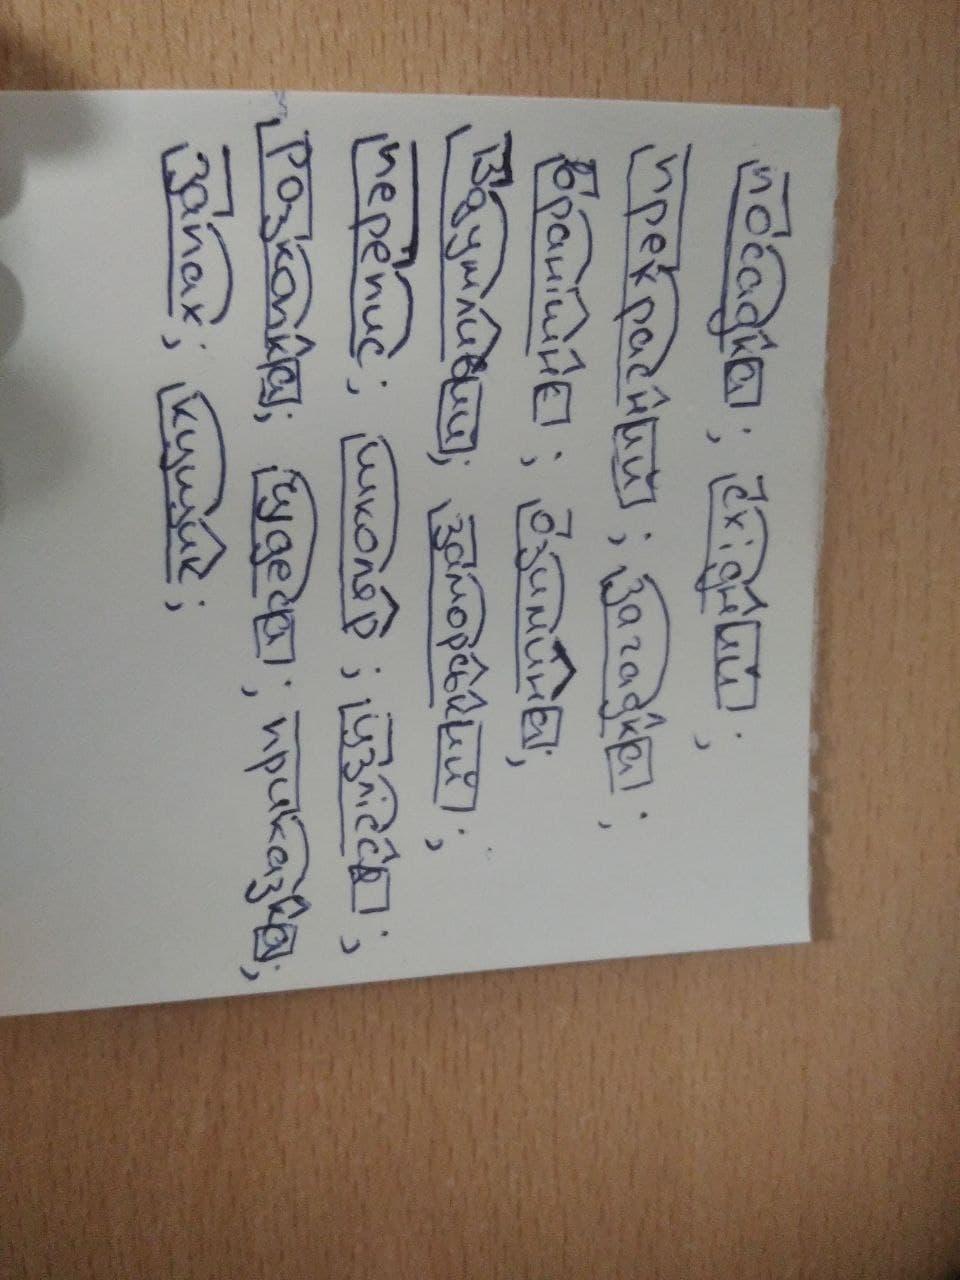 посадка; східний;
прекрасний; загадка;
вранішнє; озимина;
Вдумливий; заморський;
перепис; школяр; узлісся;
Розкопка; чудеса; приказка;
Запах; кущик;